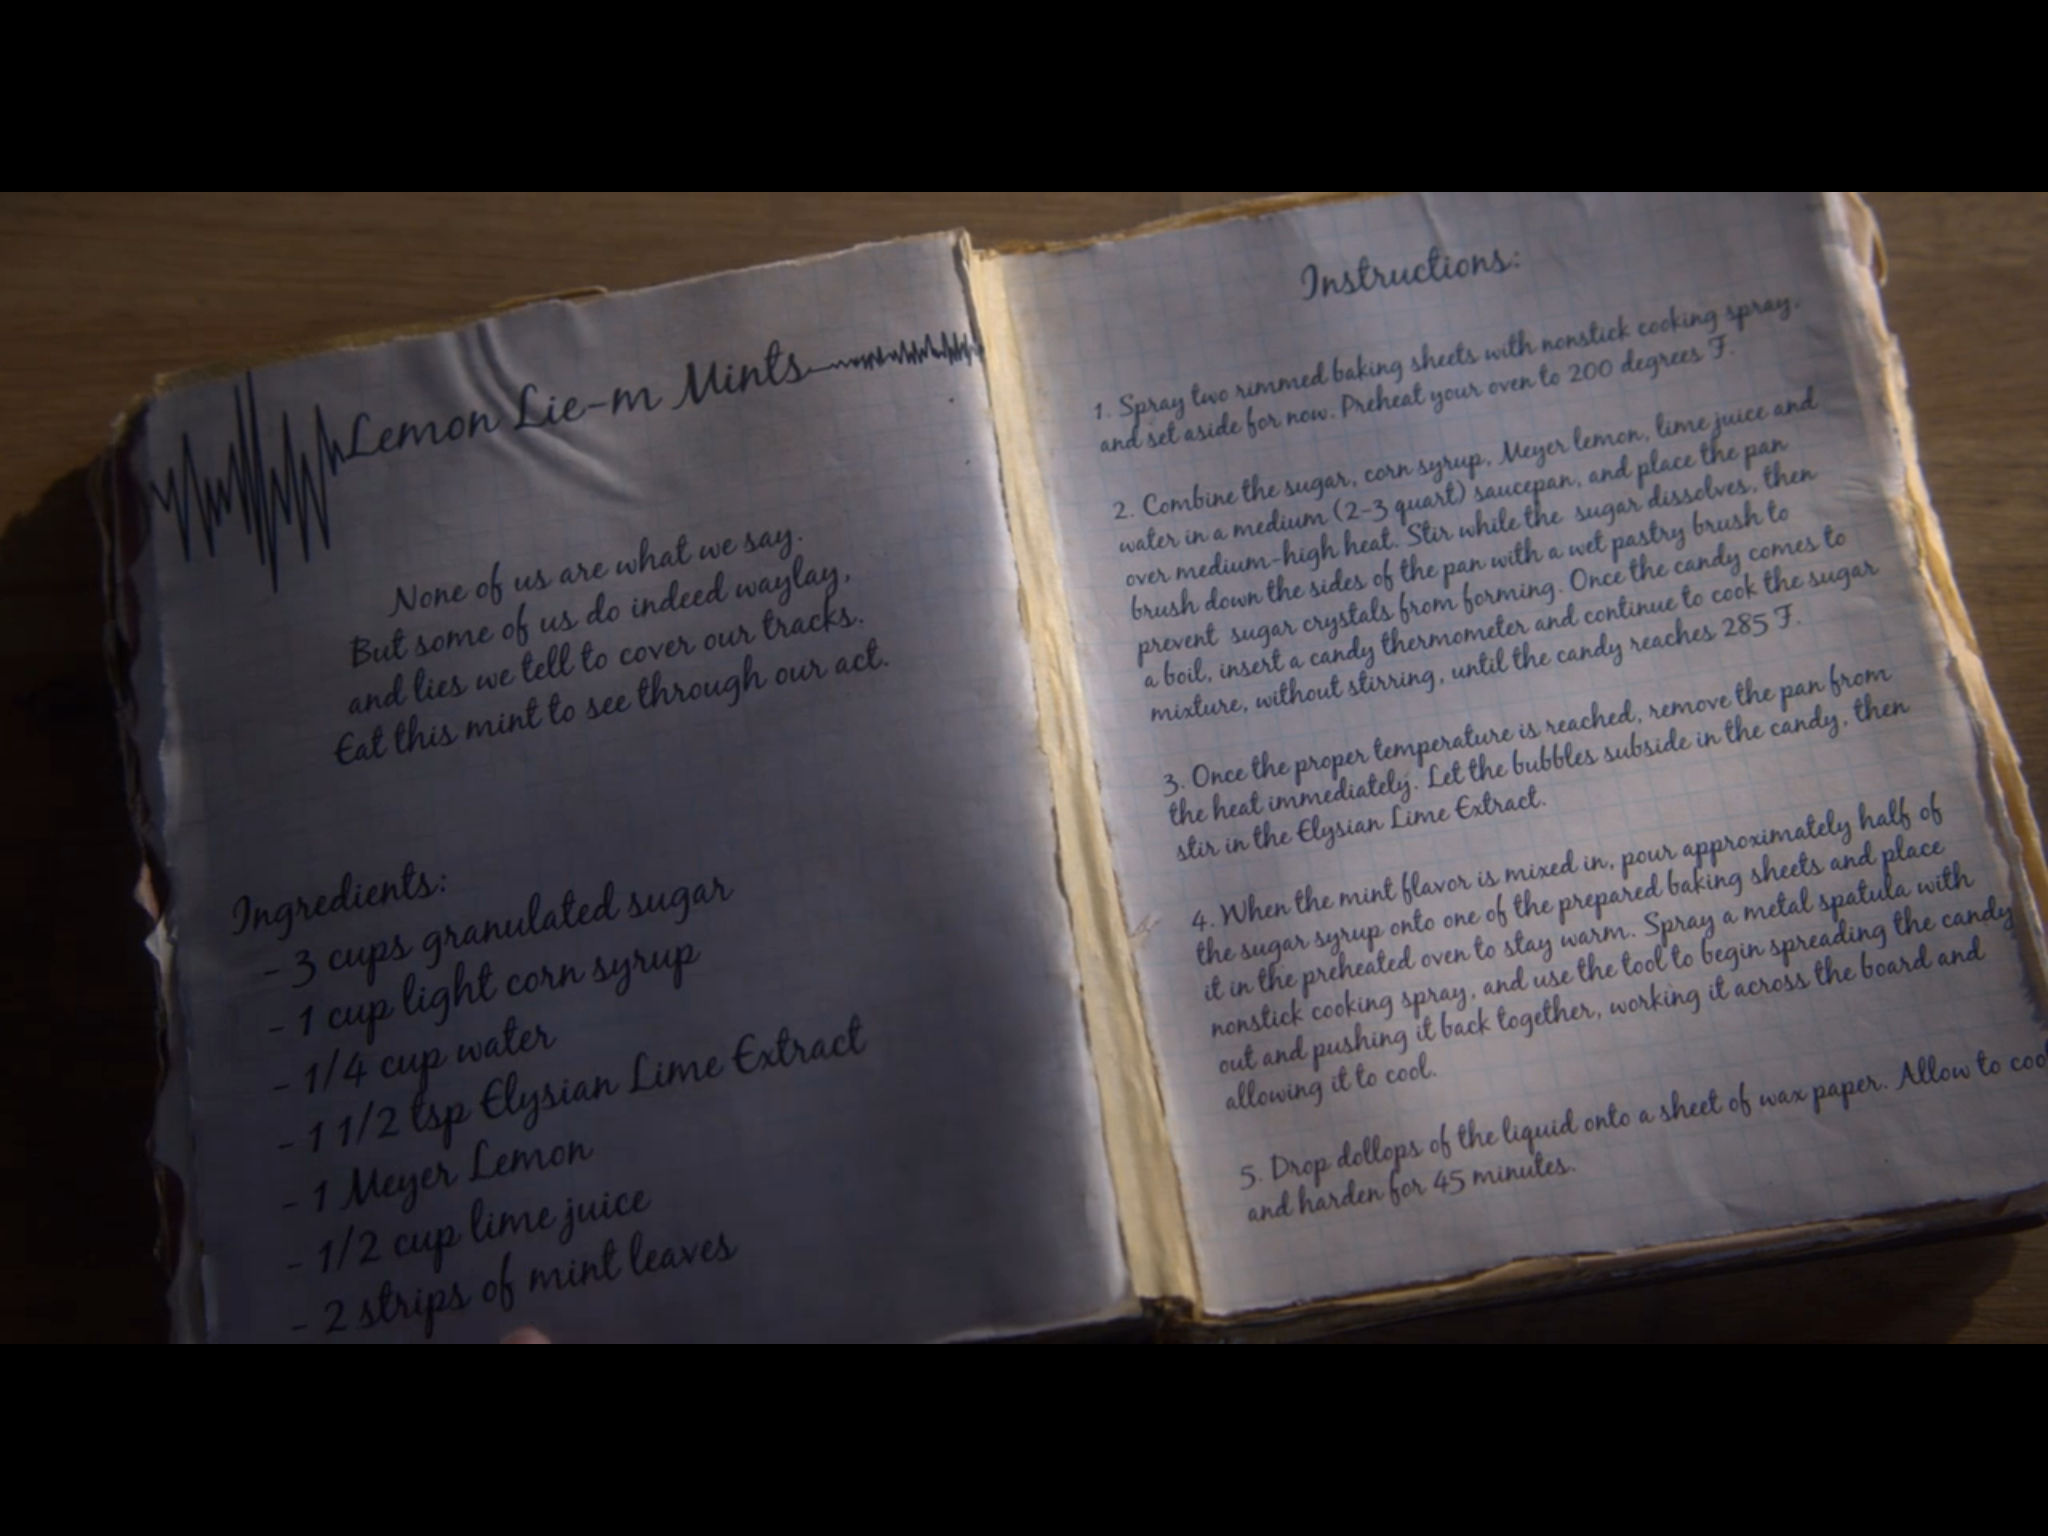 Lemon Lie-m Mints
None of us are what we say.
But some of us do indeed waylay,
and lies we tell to cover our tracks.
Eat this mint to see through our act.
Ingredients:
- 3 cups granulated sugar
- 1 cup light corn syrup
- 1/4 cup water
- 1 1/2 tsp Elysian Lime Extract
- 1 Meyer Lemon
- 1/2 cup lime juice
- 2 strips of mint leaves
Instructions:
1. Spray two rimmed baking sheets with nonstick cooking spray,
and set aside for now. Preheat your oven to 200 degrees F.
2. Combine the sugar, corn syrup, Meyer lemon, lime juice and
water in a medium (2-3 quart) saucepan, and place the pan
over medium-high heat. Stir while the sugar dissolves, then
brush down the sides of the pan with a wet pastry brush to
prevent sugar crystals from forming. Once the candy comes to
a boil, insert a candy thermometer and continue to cook the sugar
mixture, without stirring, until the candy reaches 285 F.
3. Once the proper temperature is reached, remove the pan from
the heat immediately. Let the bubbles subside in the candy, then
stir in the Elysian Lime Extract.
4. When the mint flavor is mixed in, pour approximately half of
the sugar syrup onto one of the prepared baking sheets and place
it in the preheated oven to stay warm. Spray a metal spatula with
nonstick cooking spray, and use the tool to begin spreading the candy
out and pushing it back together, working it across the board and
allowing it to cool.
5. Drop dollops of the liquid onto a sheet of wax paper. Allow to cool
and harden for 45 minutes.